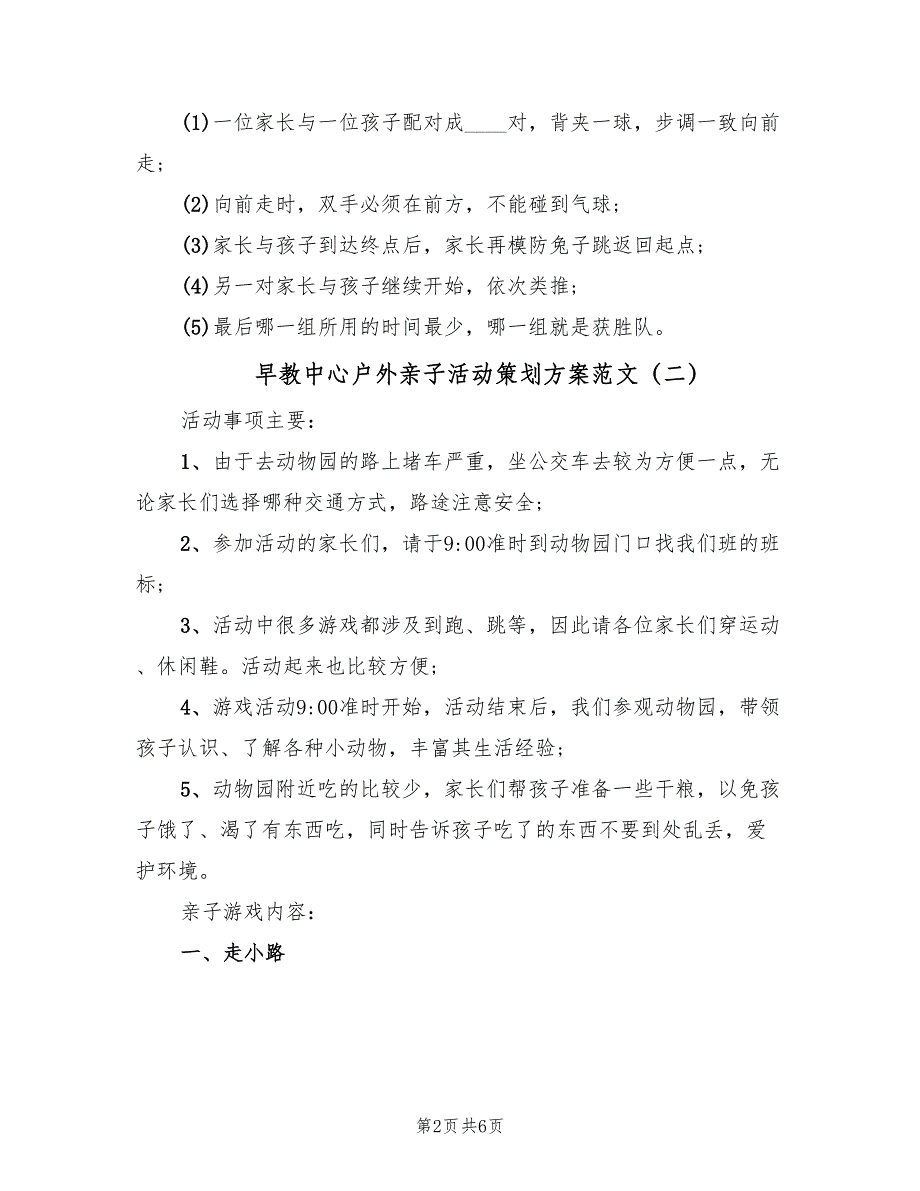 (1)一位家长与一位孩子配对成____对，背夹一球，步调一致向前
走;
(2)向前走时，双手必须在前方，不能碰到气球;
(3)家长与孩子到达终点后，家长再模防兔子跳返回起点;
(4)另一对家长与孩子继续开始，依次类推;
(5)最后哪一组所用的时间最少，哪一组就是获胜队。
早教中心户外亲子活动策划方案范文（二）
活动事项主要：
1、由于去动物园的路上堵车严重，坐公交车去较为方便一点，无
论家长们选择哪种交通方式，路途注意安全;
2、参加活动的家长们，请于9:00准时到动物园门口找我们班的班
标;
3、活动中很多游戏都涉及到跑、跳等，因此请各位家长们穿运动
、休闲鞋。活动起来也比较方便;
4、游戏活动9:00准时开始，活动结束后，我们参观动物园，带领
孩子认识、了解各种小动物，丰富其生活经验;
5、动物园附近吃的比较少，家长们帮孩子准备一些干粮，以免孩
子饿了、渴了有东西吃，同时告诉孩子吃了的东西不要到处乱丢，爱
护环境。
亲子游戏内容：
一、走小路
第2页共6页